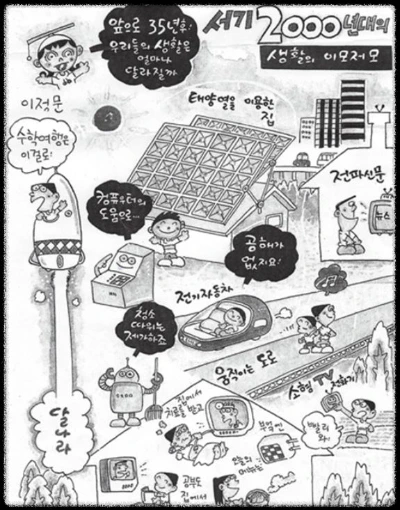 앞으로 35년후
우리들의 생활은
얼마나
달라질까
서기 2000년대의
생활의 이모저모
이정문
태양열을 이용한
집
수학여행은
이걸로!
전파신문
뉴스
컴퓨우터의
도움으로…
공해가
없지요!
전기자동차
청소
따위는
제가하죠
움직이는 도로
소형 TV 전화기
빨리
와!
달나라
집에서
치료를 받고
부엌엔
오늘의
메뉴는
공부도
집에서